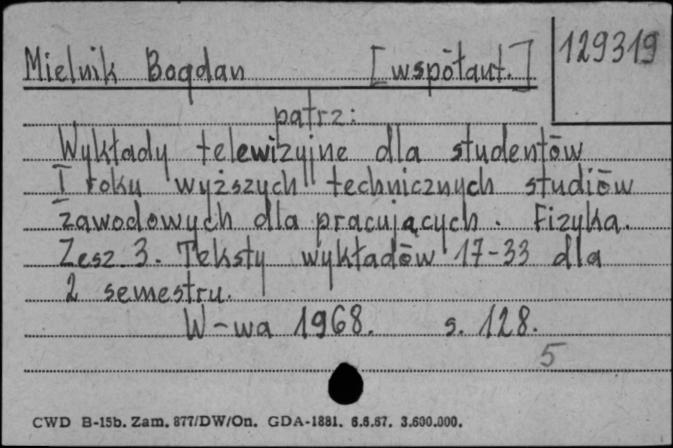 129319
Mielnik Bogdan [współaut.]
patrz:
Wykłady telewizyjne dla studentów
I roku wyższych technicznych studiów
zawodowych dla pracujących. Fizyka.
Zesz. 3. Teksty wykładów 17-33 dla
2 semestru.
W-wa 1968. s. 128.
5
CWD B-15b. Zam. 877/DW/On. GDA-1881. 6.6.67. 3.600.000.